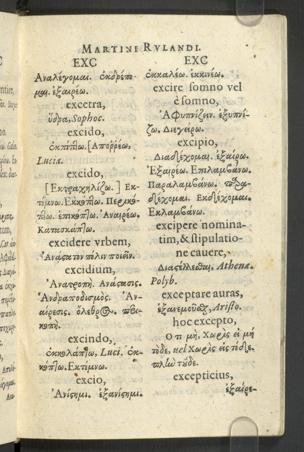 MARTINI RVLANDI.
EXC
Αναλέγομαι. ἐκδρέπομαι. ἐξαιρέω.
excetra,
ὕδρα, Sophoc.
excido,
ἐκπίπτω. [Απορρέω,
Lucia.
excido,
[Εκτραχηλίζω.] Εκτίμνω. Εκκόπτω. Περικόπτω. ἐπικόπτω. Αναιρέω.
Κατασκάπτω.
excidere vrbem,
Ανάστατον πόλιν ποιεῖν.
excidium,
Ανατροπή. Ανάστασις.
Ανδραποδισμός. Αναίρεσις. ὄλεθρος.
excindo,
ἐκκολάπτω, Luci. ἐκκόπτω. Εκτίμνω.
excio,
Ανίστημι. ἐξανίστημι.
EXC
ἐκκαλέω. ἐκκινέω.
excire somno vel
è somno,
Αφυπνίζειν. ἐξυπνίζω. Διεγείρω.
excipio,
Διαδέχομαι. ἐξαίρω.
Εξαιρέω. Επιλαμβάνω.
Παραλαμβάνω.
Εκδέχομαι.
Εκλαμβάνω.
excipere nominatim, & stipulatione cauere,
Διαστέλλεσθαι, Athenæ.
Polyb.
exceptare auras,
Aristo.
hoc excepto,
Ο τι μὴ, Χωρὶς εἰ μὴ
τόδε, vel Χωρὶς
πλὼ τόδε.
excepticius,
ἐξαίρε-